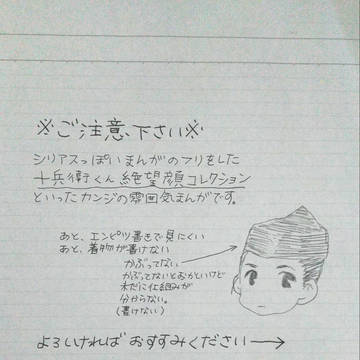 ※ご注意下さい※
シリアスっぽいまんがのフリをした
十兵衛くん絶望顔コレクション
といったカンジの雰囲気まんがです。
あと、エンピツ書きで見にくい
あと、着物が書けない
かぶってない
かぶってないとおかといけど
未だに仕組みが
分からない。
(書けない)
よろしければおすすみください→